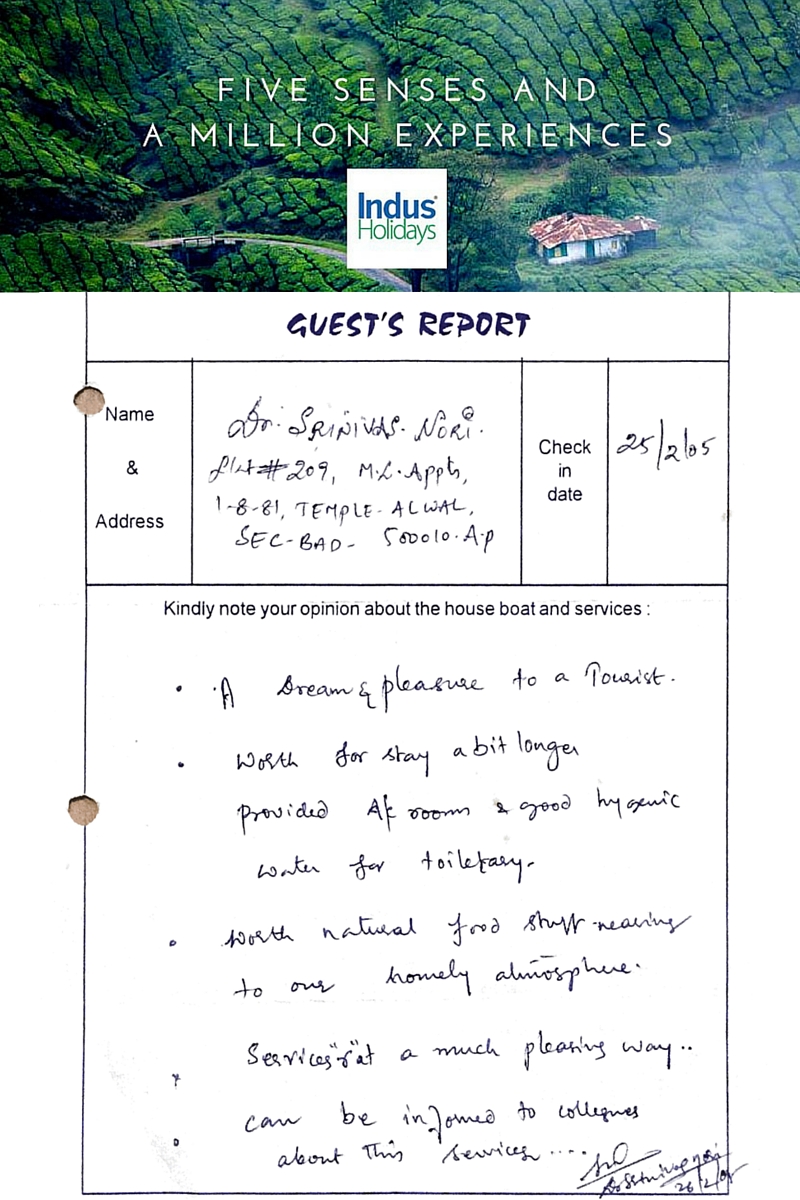 FIVE SENSES AND
A MILLION EXPERIENCES
Indus®
Holidays
GUEST'S REPORT
Name
&
Address
Dr. SRINIVAS. NORI.
Flat # 209, M.L. Appts,
1-8-81, TEMPLE-ALWAL,
SEC-BAD- 500010. A.P
Check
in
date
25/2/05
Kindly note your opinion about the house boat and services :
• A Dream & pleasure to a Tourist.
• Worth for stay a bit longer
provided A/c rooms & good hygenic
water for
• Worth natural food stuff nearing
to our homely atmosphere.
Services "r" at a much pleasing way..
• can be infomed to collegues
about This services....
Dr Srinivas Nori
26/2/05